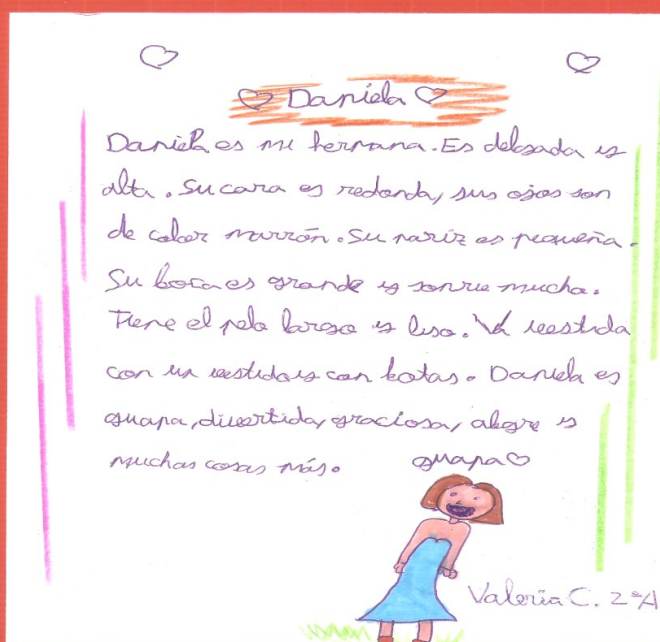 ♡ Daniela ♡
Daniela es mi hermana. Es delgada y
alta. Su cara es redonda, sus ojos son
de color marrón. Su nariz es pequeña.
Su boca es grande y sonrie mucha.
Tiene el pelo largo y liso. Va vestida
con un vestido y con botas. Daniela es
guapa, divertida, graciosa, alegre y
muchas cosas más.
guapa ♡
Valeria C. 2ºA